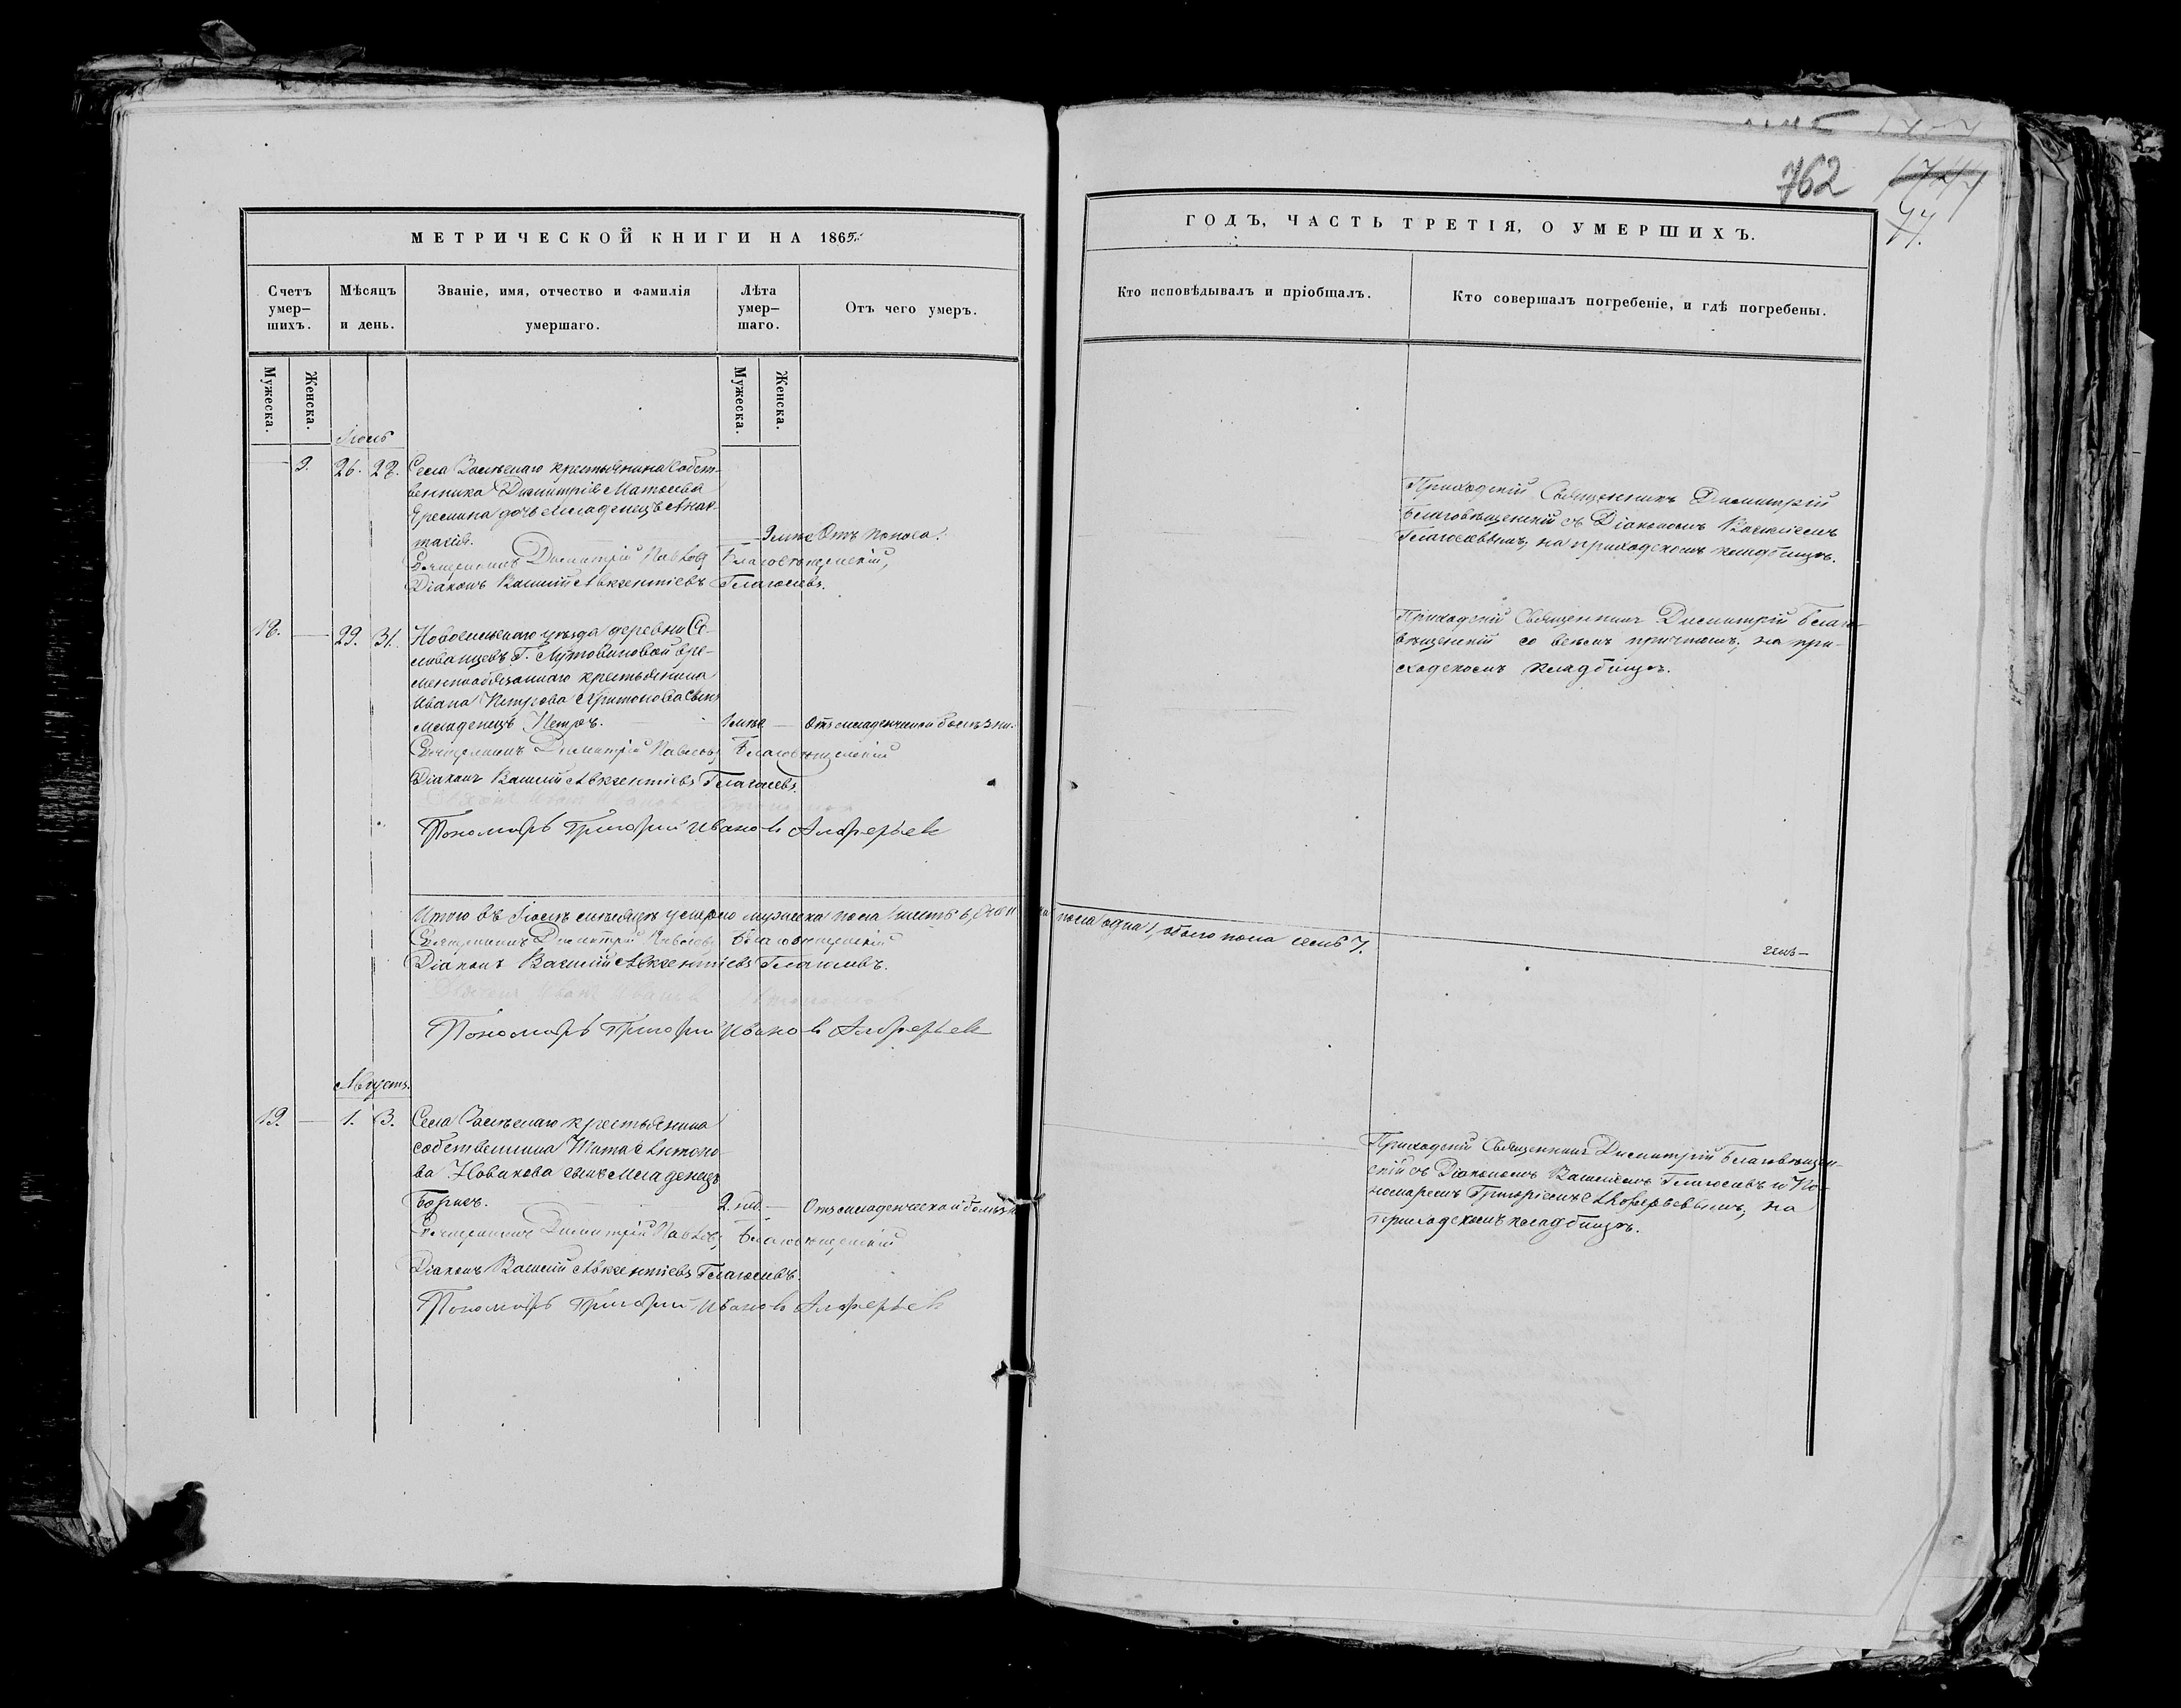 762
94.
МЕТРИЧЕСКОЙ КНИГИ НА 1865.
Счетъ умер–шихъ.
Мѣсяцъ и день.
Званіе, имя, отчество и фамилія умершаго.
Лѣта умер–шаго.
Отъ чего умеръ.
Мужеска.
Женска.
Мужеска.
Женска.
Іюль
9. 26. 28. Села Вослескаго крестьянина собст-
венника Димитрія Матвеева
Еремина дочь младенецъ Анас-
тасія. Отъ поноса.
Священникъ Димитрій Павловъ Благовѣщенскій,
Діаконъ Василій Авксентіевъ Глаголевъ.
18. — 29. 31. Новосильскаго уѣзда деревни Се-
ливанцевъ Г. Лутовиновой вре-
меннообязаннаго крестьянина
Ивана Петрова Харитонова сынъ
младенецъ Петръ. — Отъ младенческой болѣзни.
Священникъ Димитрій Павловъ Благовѣщенскій
Діаконъ Василій Авксентіевъ Глаголевъ.
Пономарь Григорій Ивановъ Алферьевъ
Итого въ Іюлѣ мѣсяцѣ умерло мужеска пола шесть 6, женска пола одна 1, обоего пола семь 7.
Священникъ Димитрій Павловъ Благовѣщенскій
Діаконъ Василій Авксентіевъ Глаголевъ.
Пономарь Григорій Ивановъ Алферьевъ
Августъ.
19. — 1. 3. Села крестьянина
собственника Антоно-
ва Новикова сынъ младенецъ
Борисъ. 2. нед. — Отъ младенческой болѣзни
Священникъ Димитрій Павловъ Благовѣщенскій
Діаконъ Василій Авксентіевъ Глаголевъ.
Пономарь Григорій Ивановъ Алферьевъ
ГОДЪ, ЧАСТЬ ТРЕТІЯ, О УМЕРШИХЪ.
Кто исповѣдывалъ и пріобщалъ.
Кто совершалъ погребеніе, и гдѣ погребены.
Приходскій Священникъ Димитрій
Благовѣщенскій съ Діакономъ Василіемъ
Глаголевымъ, на приходскомъ кладбищѣ.
Приходскій Священникъ Димитрій Благо-
вѣщенскій со всѣмъ причтомъ, на при-
ходскомъ кладбищѣ.
Приходскій Священникъ Димитрій Благовѣщен-
скій съ Діакономъ Василіемъ Глаголевъ и По-
номаремъ Григоріемъ Алферьевымъ, на
приходскомъ кладбищѣ.